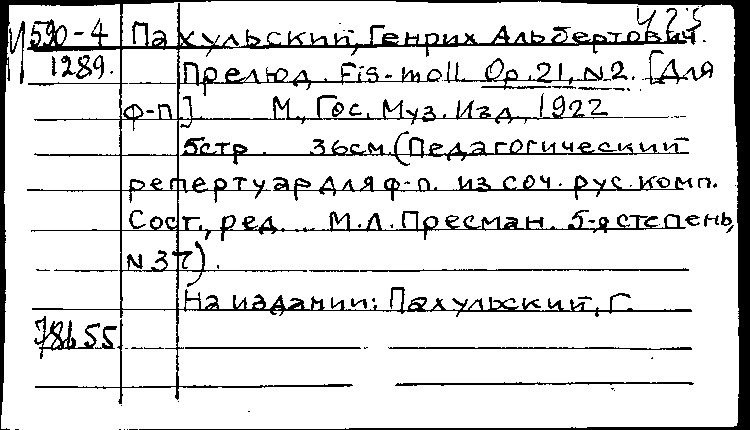 425
М 590-4 Пахульский, Генрих Альбертович.
1289. Прелюд. Fis-moll. Op. 21, N2. [Для
ф-п.]. М., Гос. Муз. Изд., 1922
5стр. 36см. (Педагогический
репертуар для ф-п. из соч. рус. комп.
Сост., ред. ... М.Л. Пресман. 5-я степень,
N 37).
На издании: Пахульский, Г.
78655